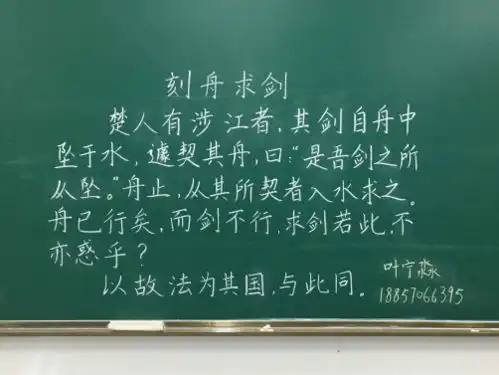 刻舟求剑
楚人有涉江者，其剑自舟中
坠于水，遽契其舟，曰：“是吾剑之所
从坠。”舟止，从其所契者入水求之。
舟已行矣，而剑不行，求剑若此，不
亦惑乎？
以故法为其国，与此同。
叶宁淼
18857066395